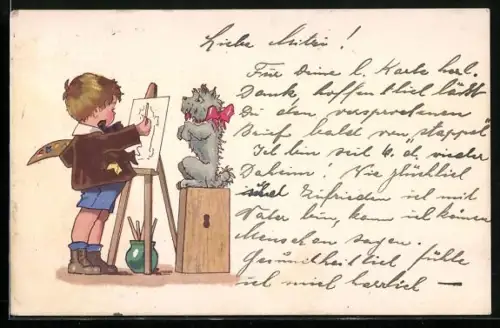 Liebe Mitzi!
Für deine l. Karte herzl.
Dank, hoffentlich läßt
Du den versprochenen
Brief bald von "Stappel"
Ich bin seit 4. d. wieder
Daheim! Wie glücklich
und zufrieden ich mit
Vater bin, kann ich keinem
Menschen sagen.
Gesundheitlich fühle
ich mich herrlich —